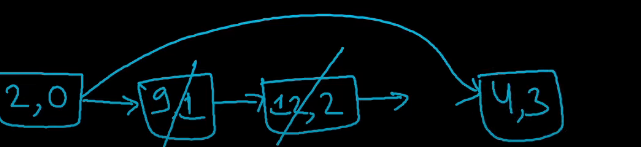 2,0 9,1 12,2 4,3